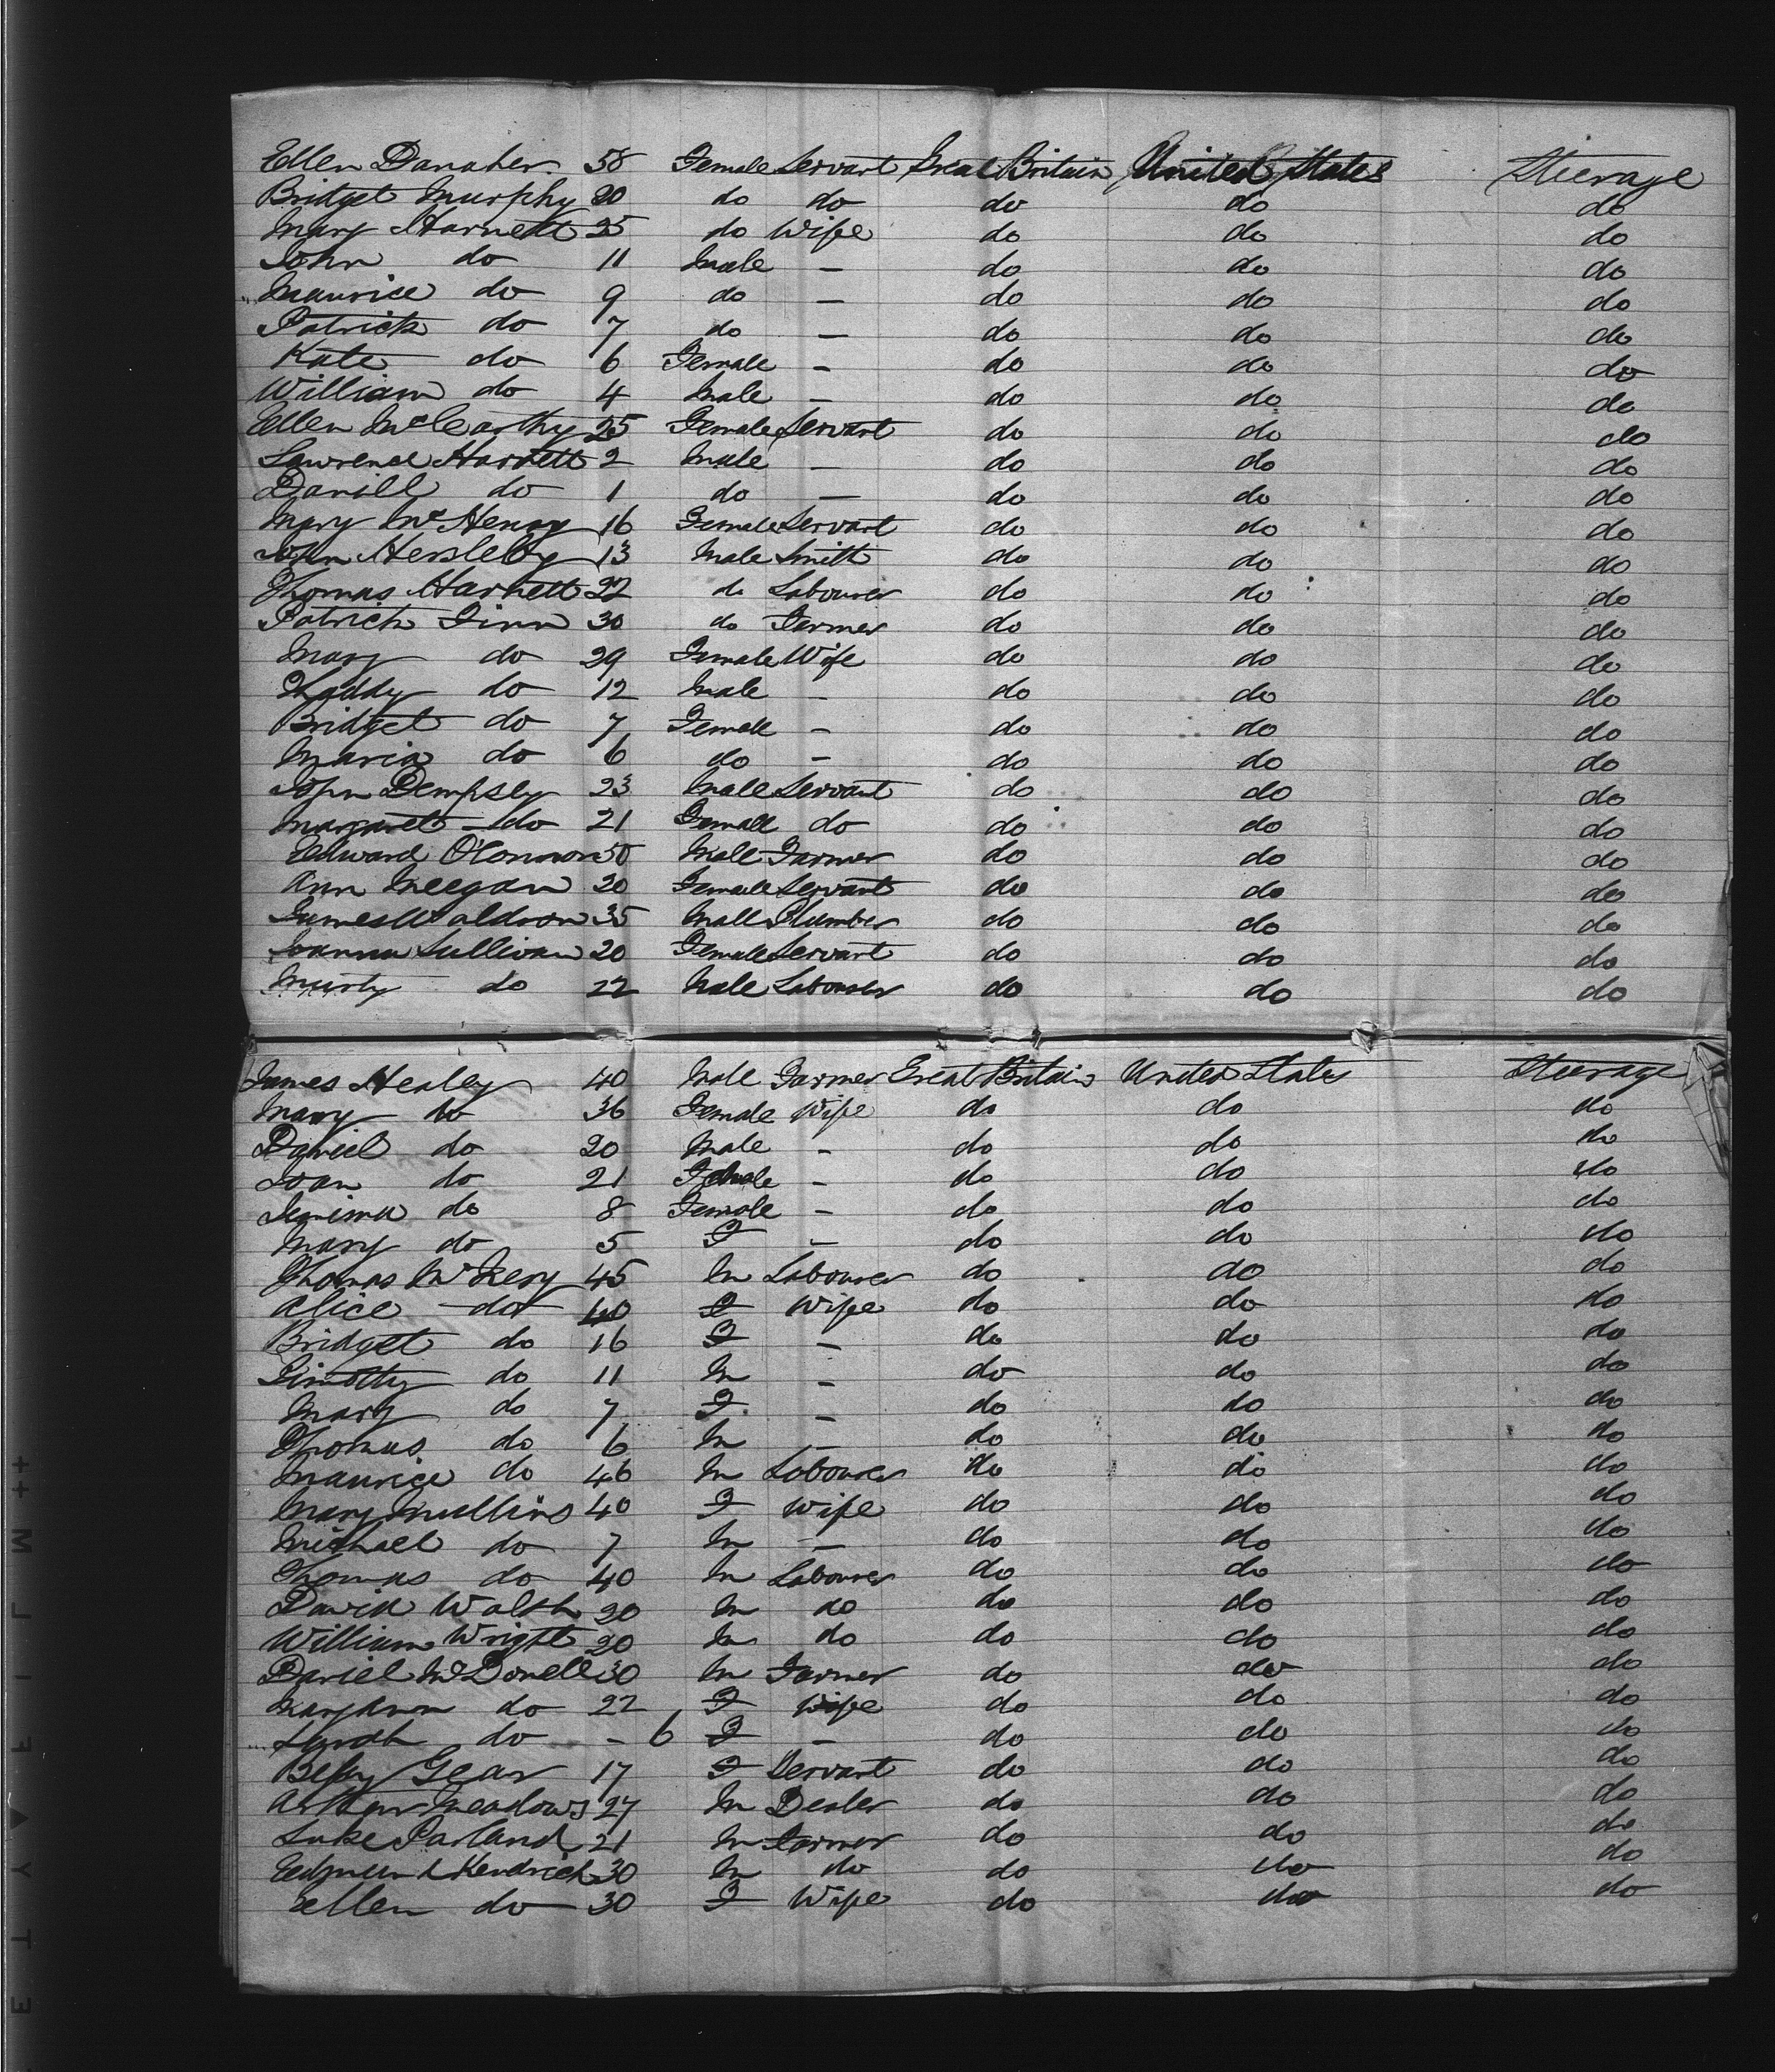 Ellen Danaher. 58 Female Servant Great Britain United States Steerage
Bridget Murphy 20 do do do do do
Mary Harnett 25 do Wife do do do
John do 11 Male – do do do
Maurice do 9 do – do do do
Patrick do 7 do – do do do
Kate do 6 Female – do do do
William do 4 Male – do do do
Ellen McCarthy 25 Female Servant do do do
Lawrence Harnett 2 Male – do do do
Daniell do 1 do – do do do
Mary McHenry 16 Female Servant do do do
John 13 Male Smith do do do
Thomas Harnett 22 do Labourer do do do
Patrick Finn 30 do Farmer do do do
Mary do 29 Female Wife do do do
Thaddy do 12 Male – do do do
Bridget do 7 Female – do do do
Maria do 6 do – do do do
John Dempsey 23 Male Servant do do do
Margaret do 21 Female do do do do
Edward O'Connor 50 Male Farmer do do do
Ann Meegan 20 Female Servant do do do
James Waldron 35 Male Plumber do do do
Joanna Sullivan 20 Female Servant do do do
Murty do 22 Male Labourer do do do
James Healey 40 Male Farmer Great Britain United States Steerage
Mary do 36 Female Wife do do do
Daniel do 20 Male – do do do
Joan do 21 Female – do do do
Jemima do 8 Female – do do do
Mary do 5 F – do do do
Thomas 45 M Labourer do do do
Alice do 40 F Wife do do do
Bridget do 16 F – do do do
Timothy do 11 M – do do do
Mary do 7 F. – do do do
Thomas do 6 M – do do do
Maurice do 46 M Labourer do do do
Mary Mullins 40 F Wife do do do
Michael do 7 M – do do do
Thomas do 40 M Labourer do do do
David Walsh 20 M do do do do
William Wright 20 M do do do do
Daniel McDonell 30 M Farmer do do do
Maryann do 22 F Wife do do do
do – 6 F – do do do
Betsy Gear 17 F Servant do do do
Arthur Meadows 27 M Dealer do do do
Luke Parland 21 M Farmer do do do
Edmund Kendrick 30 M do do do do
Ellen do 30 F Wife do do do